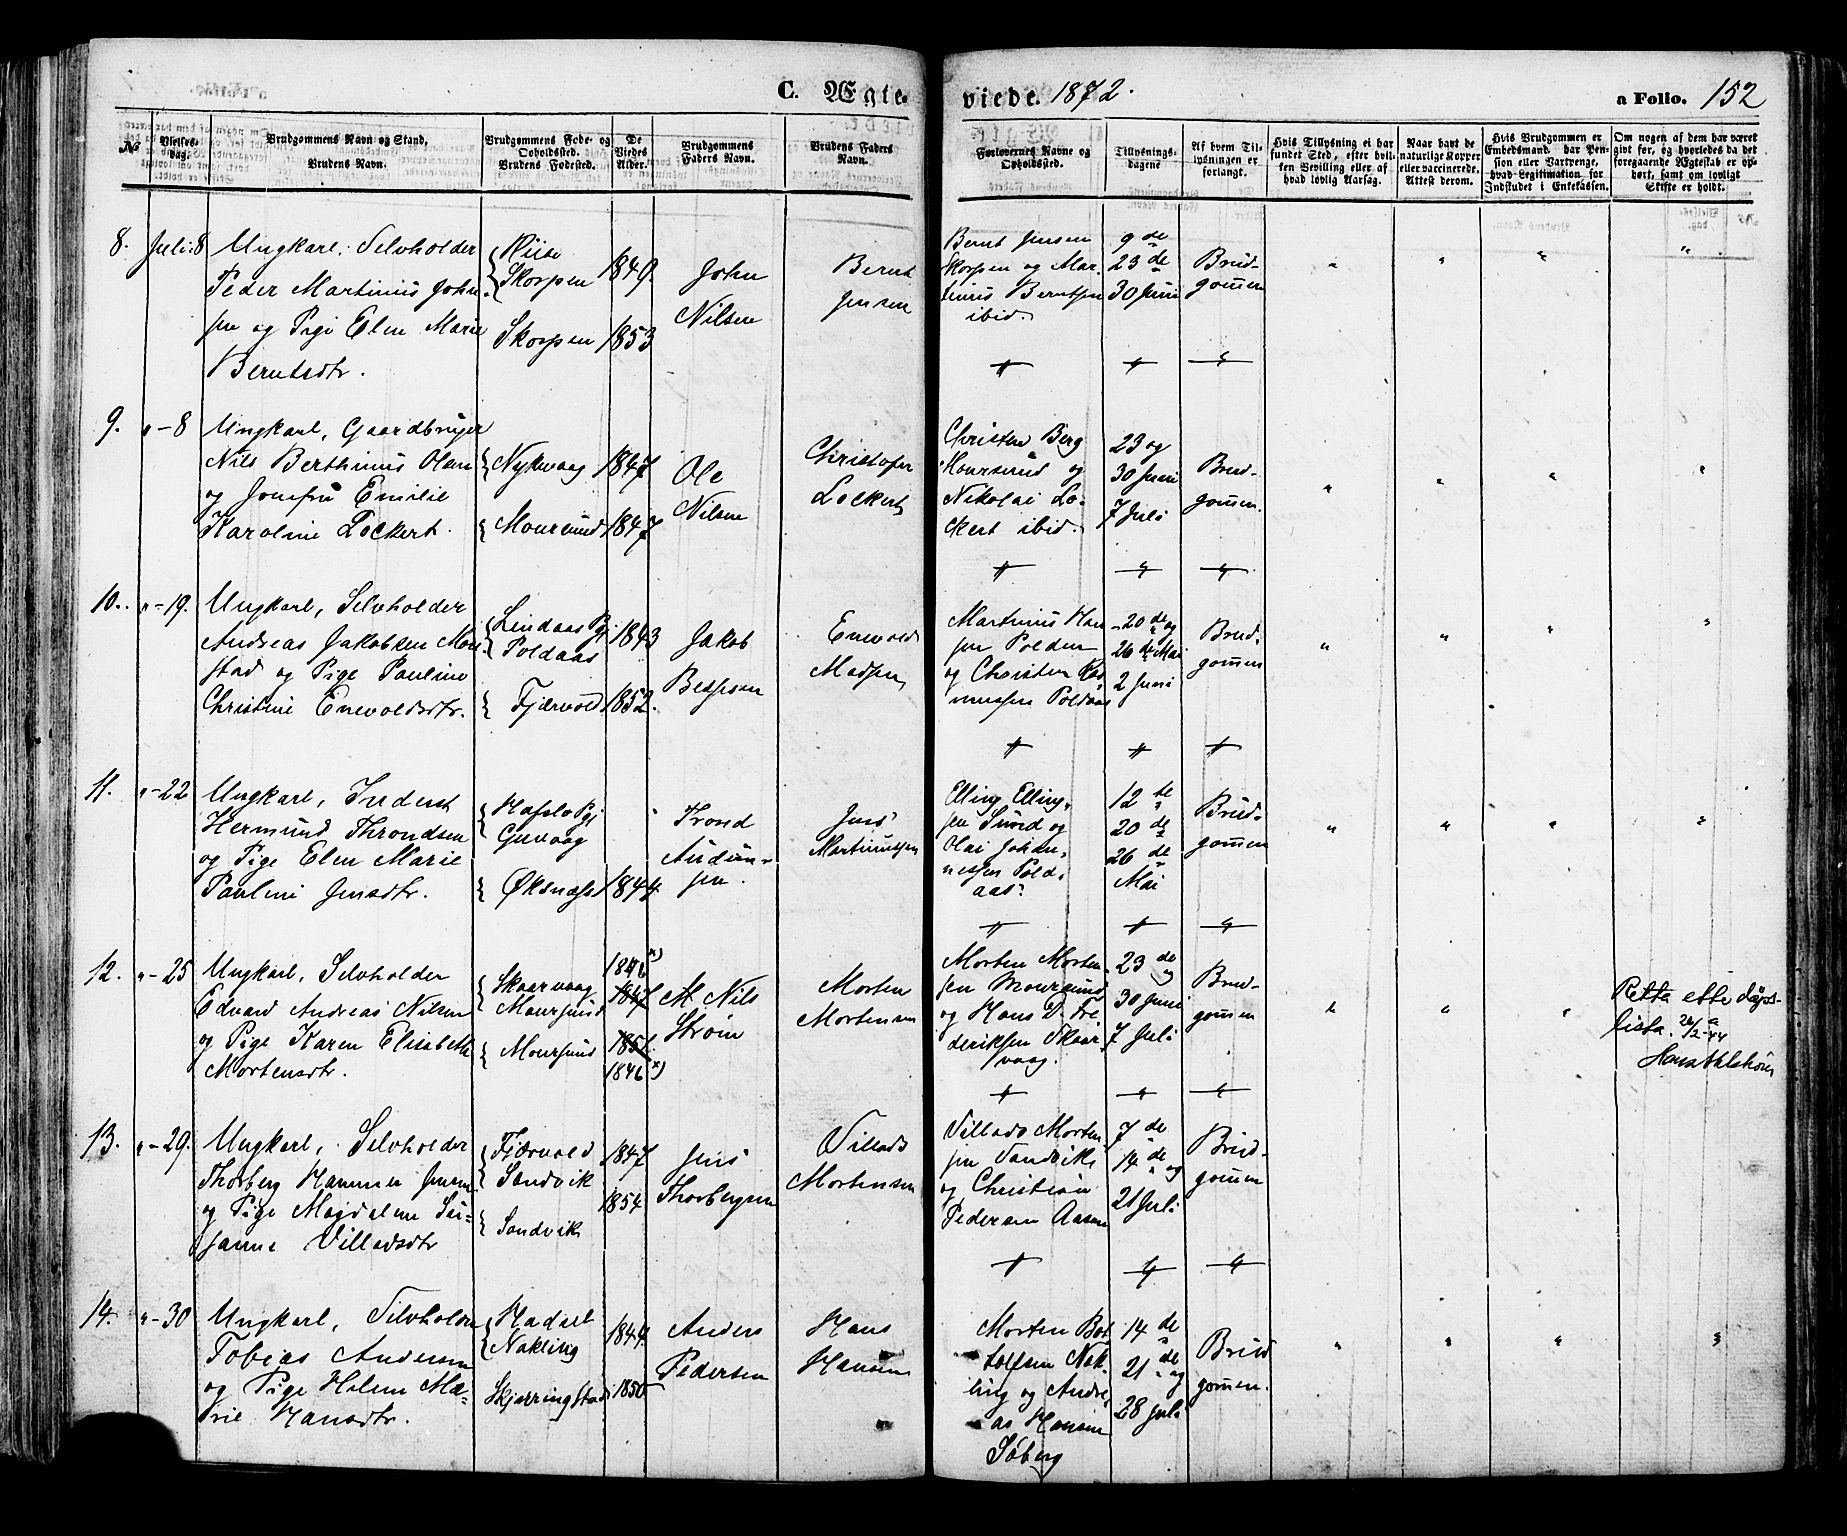 C. Ægte-
viede. 1872.
a Folio. 152
№
Vielses-
dag.
Brudgommens Navn og Stand,
Brudens Navn.
Brudgommens Føde- og
Opholdssted.
Brudens Fødested.
De
Viedes
Alder.
Brudgommens
Faders Navn.
Brudens Faders
Navn.
Forlovernes Navne og
Opholdssted.
Tillysnings-
dagene
Af hvem Til-
lysningen er
forlangt.
Hvis Tillysning ei har
fundet Sted, efter hvil-
ken Bevilling eller af
hvad lovlig Aarsag.
Naar havt de
naturlige Kopper
eller vaccinerede.
Attest derom.
Hvis Brudgommen er
Embedsmand har Pen-
sion eller Vartpenge,
hvad Legitimation for
Indskudet i Enkekassen.
Om nogen af dem har været
gift før, og hvorledes da det
foregaaende Ægteskab er op-
hørt, samt om lovligt
Skifte er holdt.
8. Juli 8
Ungkarl, Selvholder
Peder Martinus John-
sen og Pige Elen Marie
Berntsdtr.
Skorpen
Skorpen
1849.
1853
John
Nilsen
Bernt
Jensen
Bernt Jensen
Skorpen og Mar-
tinus Berntsen
ibid.
9 de
23 de
30 Juni
Brud-
gommen
9. " - 8
Ungkarl, Gaardbruger
Nils Berthinus Olsen
og Jomfru Emilie
Karoline Lockert.
Nykvaag
Moursund
1847
1847
Ole
Nilsen
Christofer
Lockert
Christen Berg
Moursund og
Nikolai Lo-
ckert ibid.
23 og
30 Juni
7 Juli
Brud-
gommen.
10. " - 19.
Ungkarl, Selvholder
Andreas Jakobsen Mon-
stad og Pige Pauline
Christine Enevoldsdtr.
Lindaas Pgj
Poldaas
Fjærvold
1843
1852.
Jakob
Enevold
Madsen
Martinus Han-
sen Polden
og Christen Ras-
mussen Poldaas
20 de og
26 de Mai
2 Juni
Brud-
gommen
11. " - 22
Ungkarl, Inderst
Hermund Throndsen
og Pige Elen Marie
Pauline Jensdtr.
Hafslo Pgj
Guvaag
Øksnæs
1844.
Trond
Audun-
sen.
Jens
Martinussen
Elling Elling-
sen Sund og
Olai Johan-
nessen Pold-
aas.
12 te
20 de
26 de
Mai
Brud-
gommen
12. " - 25
Ungkarl, Selvholder
Edvard Andreas Nilsen
og Pige Karen Elisabeth
Mortensdtr.
Skaarvaag
Moursund
Moursund
1846 x)
1847
1851.
1846 x)
M Nils
Strøm
Morten
Mortensen
Morten Morten-
sen Moursund
og Hans D. Fre-
deriksen Skaar-
vaag.
23 de
og
30 Juni
7 Juli
Brud-
gommen
Retta ette dåps-
lista.
13. " - 29.
Ungkarl, Selvholder
Thorberg Hammer Jensen
og Pige Magdalene Su-
sanne Villadsdtr
Fjærvold
Sandvik
Sandvik
1847
1854
Jens
Thorbergsen
Villads
Mortensen
Villads Morten-
sen Sandvik
og Christian
Pedersen Aasen
7 de
14 de og
21 Juli
Brud-
gommen
14. " - 30
Ungkarl, Selvholder
Tobias Andersen
og Pige Helene Ma-
rie Hansdtr.
Hadsel
Nakling
Skjærringstad
1844.
1850
Anders
Pedersen
Hans
Hansen
Morten Bot-
tolfsen Nak-
ling og Andre-
as Hansen
Søberg
14 de
21 de og
28 Juli
Brud
gommen.